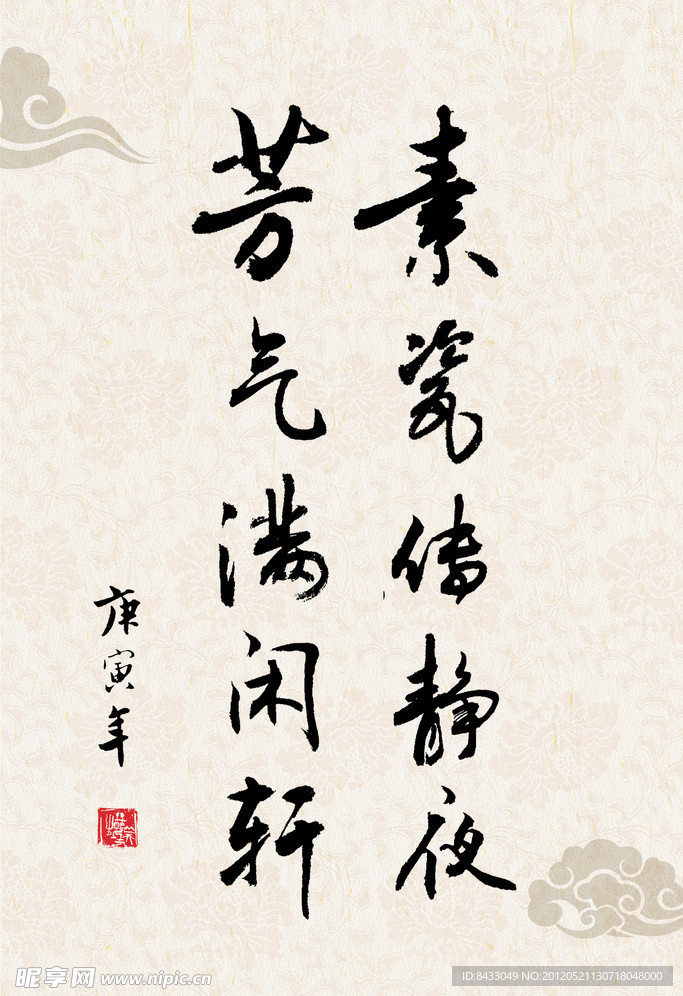 素瓷传静夜
芳气满闲轩
庚寅年
昵享网 www.nipic.cn
ID:8433049 NO:20120521130718048000